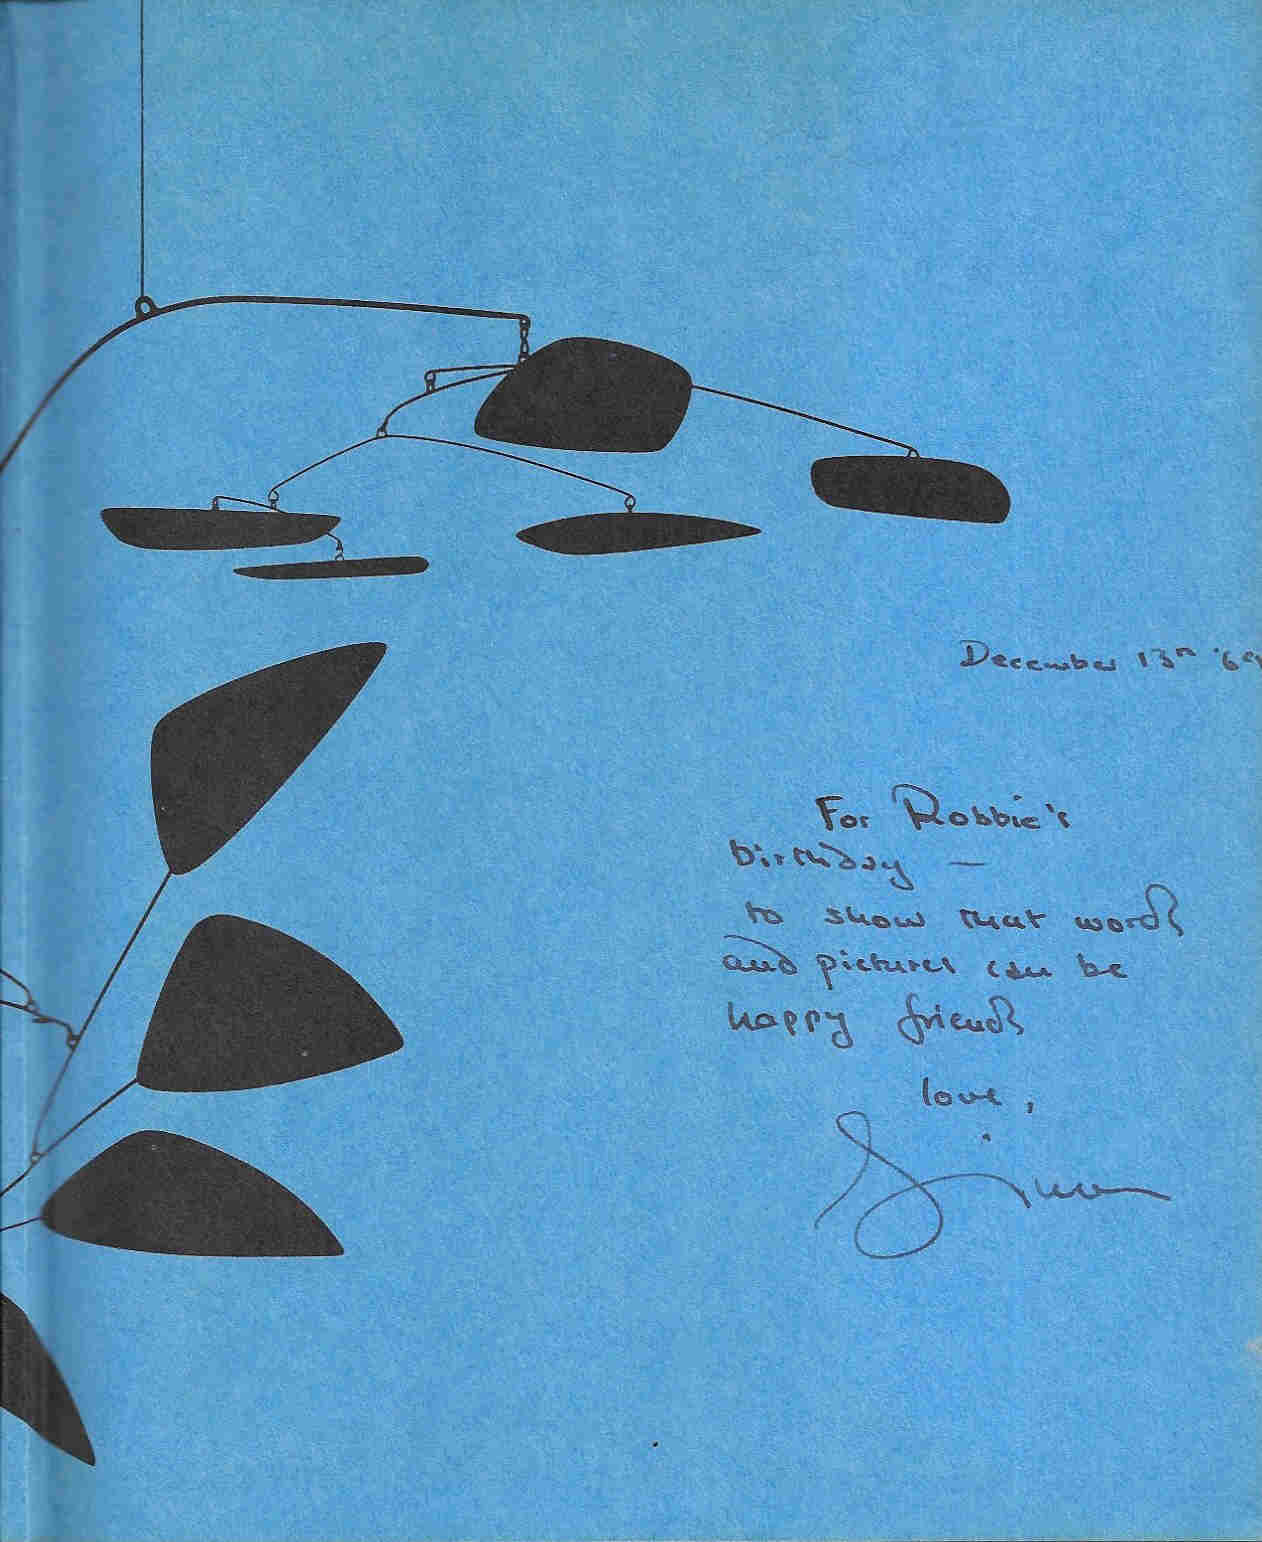 December 13th '69
For Robbie's
birthday —
to show that words
and pictures can be
happy friends
love,
Simon